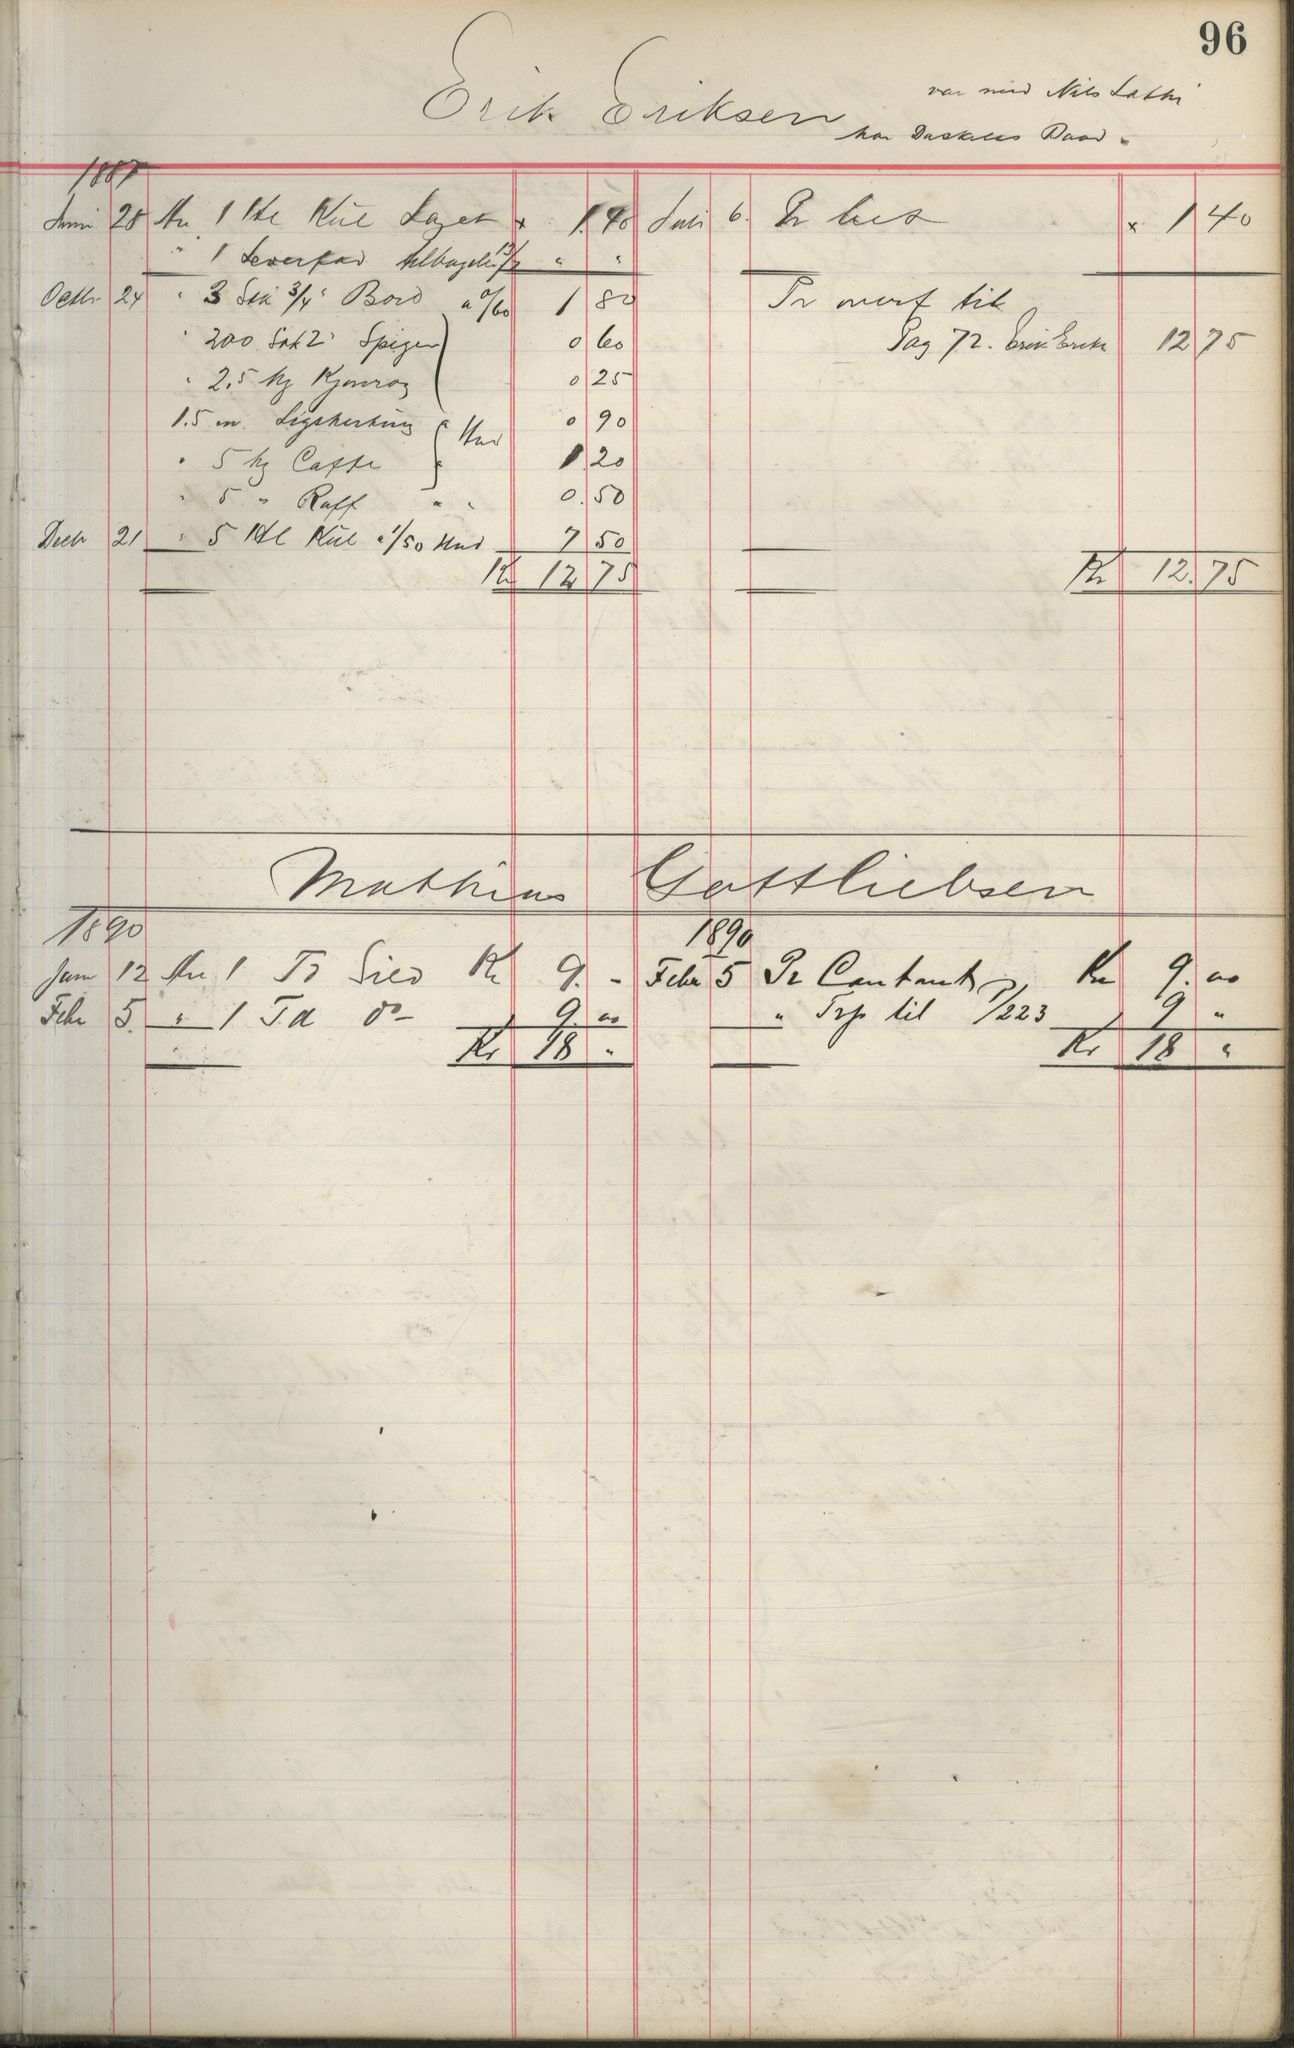 96
Erik Eriksen
var med Nils Lathi
har Baad.
1887
Juni 28 An 1 Hl Kul Laget x 1.40 Juli 6. Pr x 1 40
" 1 Leverfad tilbagelev " "
Octbr 24 " 3 Stk 3/4" Bord a 0/60 1 80 Pr overf til
" 200 Stk 2" Spiger 0 60 Pag 72. Erik Eriks 12 75
" 2.5 kg Kjønrog 0 25
1.5 m 0 90
" 5 kg Caffe Hud 1.20
" 5 " Raff " " 0.50
Decbr 21 " 5 Hl Kul a 1/50 Hud 7 50
Kr 12 75 Kr 12.75
Mathias Gottliebsen
1890 1890
Janr 12 An 1 Tr Sild Kr 9. - Febr 5 Pr Contant Kr 9.00
Febr 5. " 1 Td do - 9.00 " Trp til P/223 9 "
" Kr 18 " Kr 18 "